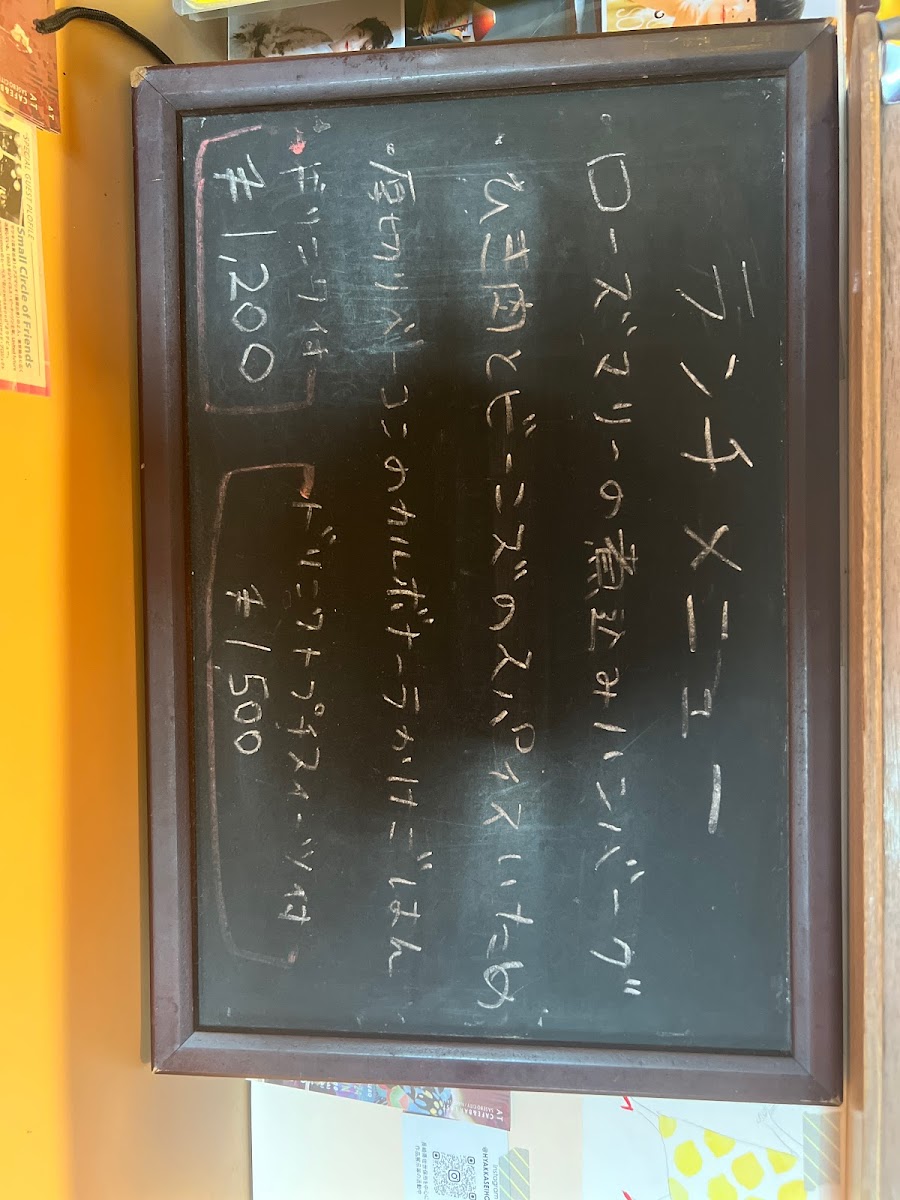 ランチメニュー
・ローズマリーの煮込みハンバーグ
・ひき肉とビーンズのスパイスいため
・厚切りベーコンのカルボナーラかけごはん
ドリンク付
¥1,200
ドリンクトプチスイーツ付
¥1,500
SPECIAL GUEST PROFILE
Small Circle of Friends